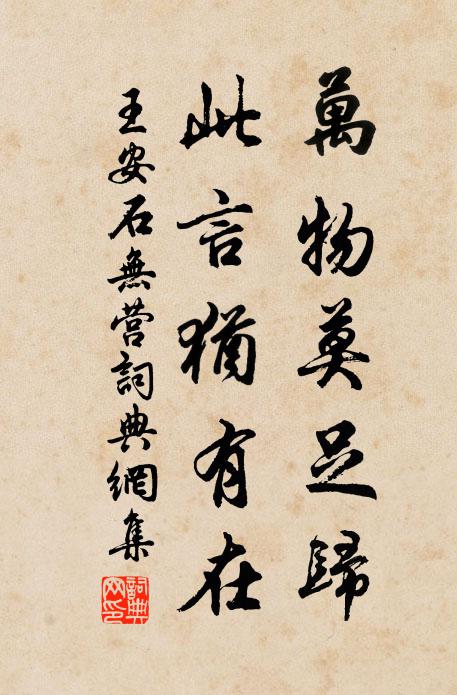 萬物莫足歸
此言猶有在
王安石無营詞典網集
詞典网印